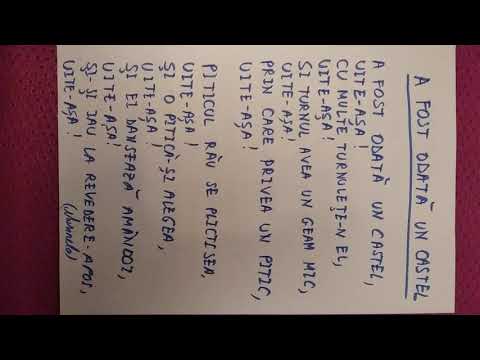 A FOST ODATĂ UN CASTEL
A FOST ODATĂ UN CASTEL,
UITE-AȘA!
CU MULTE TURNULEȚE-N EL,
UITE-AȘA!
ȘI TURNUL AVEA UN GEAM MIC,
UITE-AȘA!
PRIN CARE PRIVEA UN PITIC,
UITE-AȘA!
PITICUL RĂU SE PLICTISEA,
UITE-AȘA!
ȘI O PITICĂ-ȘI ALEGEA,
UITE-AȘA!
ȘI EI DANSEAZĂ AMÂNDOI,
UITE-AȘA!
ȘI-ȘI IAU LA REVEDERE-APOI,
UITE-AȘA!